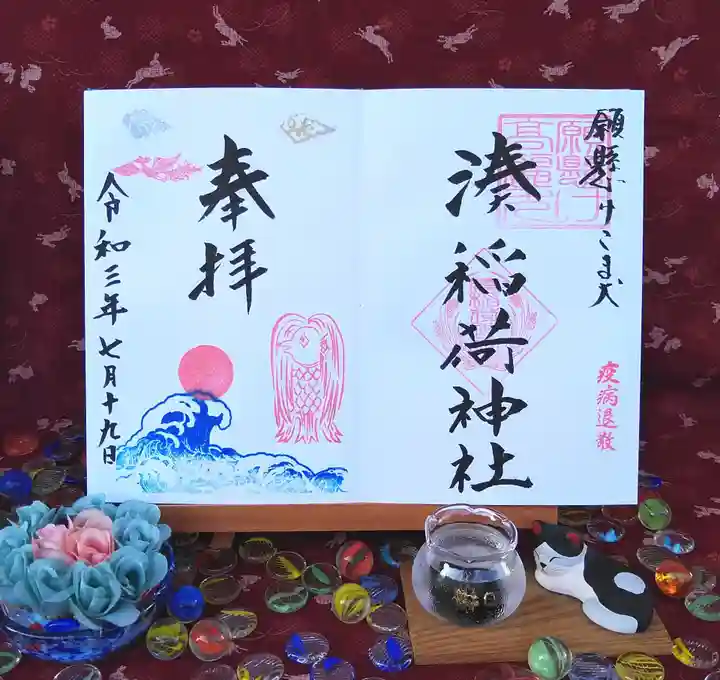 願懸けこま犬
願懸け
高麗犬
湊稲荷神社
疫病退散
奉拝
令和三年七月十九日